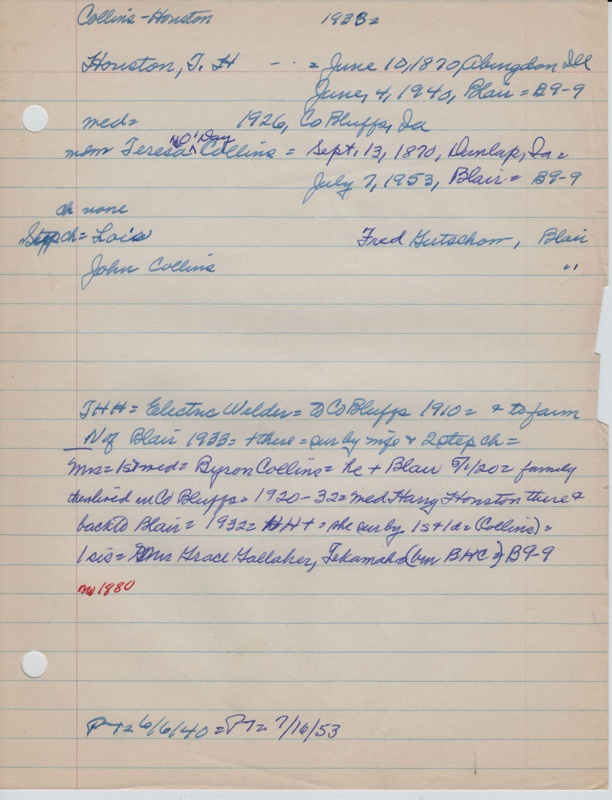 Collins-Houston 1933=
Houston, T. H -- = June 10, 1870, Abingdon Ill
June, 4, 1940, Blair = B9-9
med= 1926, Co Bluffs, Ia
O'Day
mdm Teresa Collins = Sept. 13, 1870, Dunlap, Ia =
July 7, 1953, Blair = B9-9
ch none
Step ch = Lois Fred Gutschow, Blair
John Collins "
THH = Electric Welder = to Co Bluffs 1910 = & to farm
N of Blair 1933 = + there = sur by wife & 2 step ch =
Mrs = 1st med = Byron Collins = he + Blair 5/1/20 = family
then lived in Co Bluffs = 1920-32 = med Harry Houston there &
back to Blair = 1932 = HH + = she sur by 1s + 1d = (Collins) =
1 sis = Mrs Grace Gallaher, Tekamah = (bur BHC =) B9-9
no 1880
PT = 6/6/40 = PT = 7/16/53